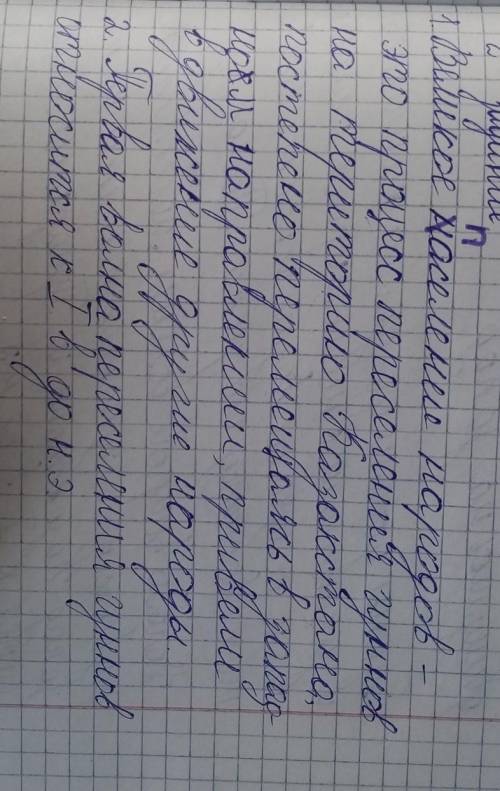 1. Великое насселение народов –
п
это процесс переселения гуннов
на територию Казакстана,
постерено перемещаясь в запад-
ном направлении, привели
в движение другие народы.
2. Первая волна переселния гуннов
относится к I в до н.э